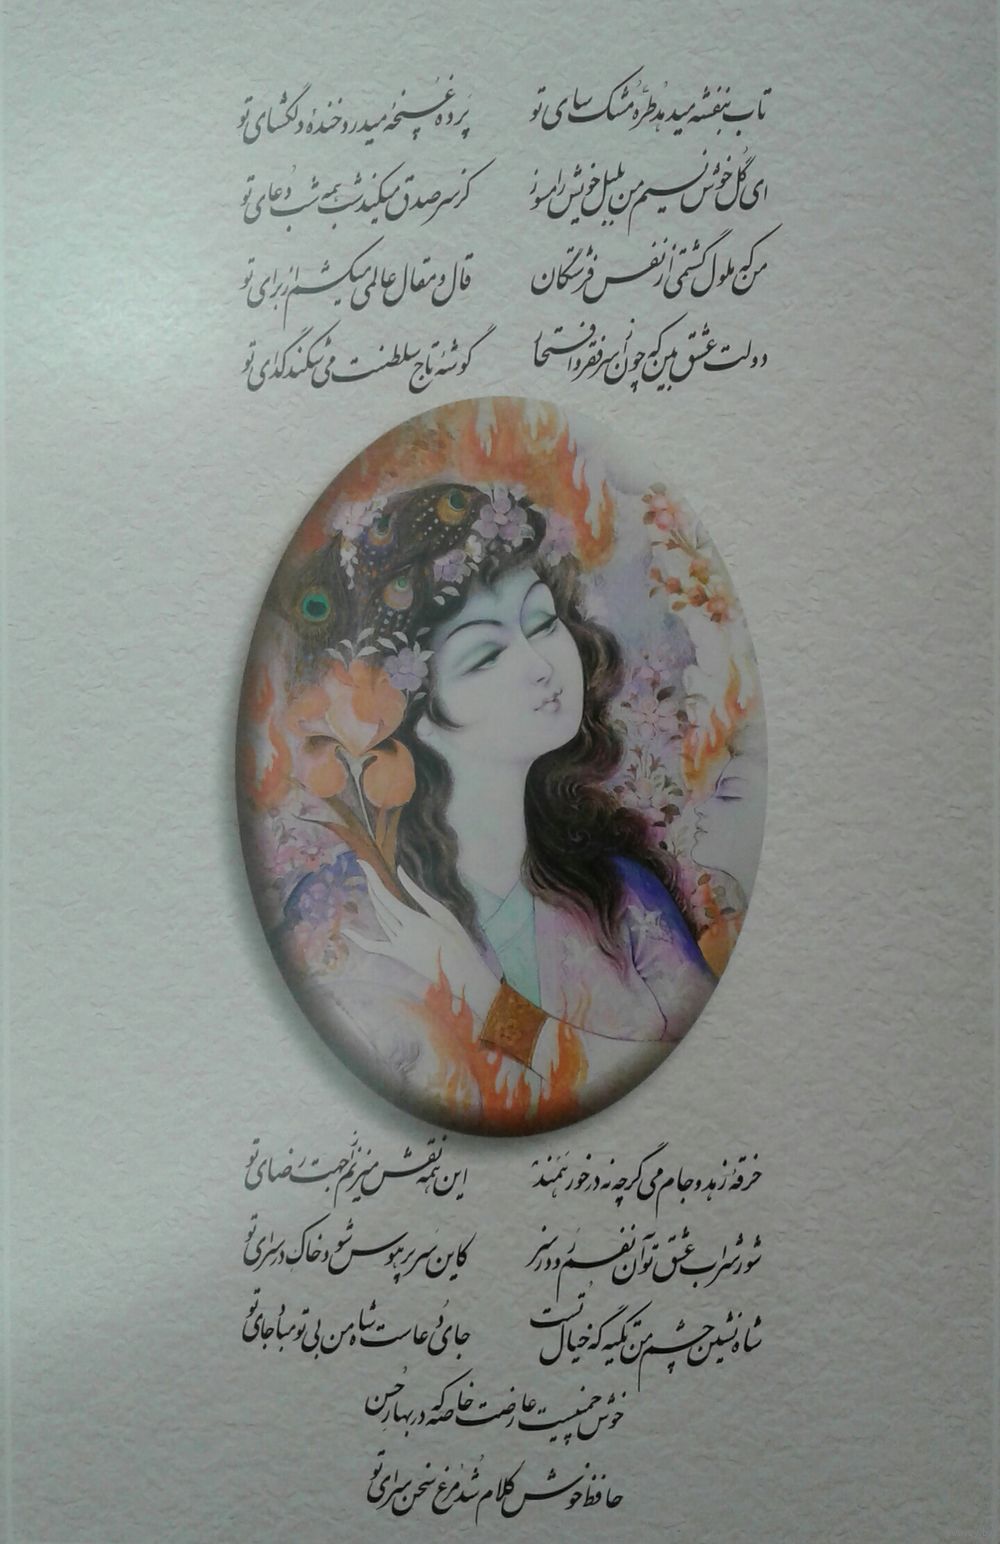 تاب بنفشه میدهد طُرهٔ مُشک سای تو پَردهٔ غنچه میدرد خندهٔ دلگشای تو
ای گُل خوش نسیم من بلبل خویش را مسوز کز سر صدق میکند شب همه شب دُعای تو
من که ملول گشتمی از نفس فرشتگان قال و مقال عالمی میکشم از برای تو
دولت عشق بین که چون از سر فقر و افتخار گوشهٔ تاج سلطنت می شکند گدای تو
خرقهٔ زهد و جام می گرچه نه درخور هَمَند این همه نقش میزنم از جهت رضای تو
شور شراب عشق تو آن نفسم رَوَد ز سر کاین سَر پر هوس شود خاک در سرای تو
شاه نشین چشم من تکیه گه خیال تُست جای دُعاست شاه من بی تو مباد جای تو
خوش چمنیست عارضت خاصه که در بهار حُسن
حافظ خوش کلام شُد مُرغ سخن سرای تو